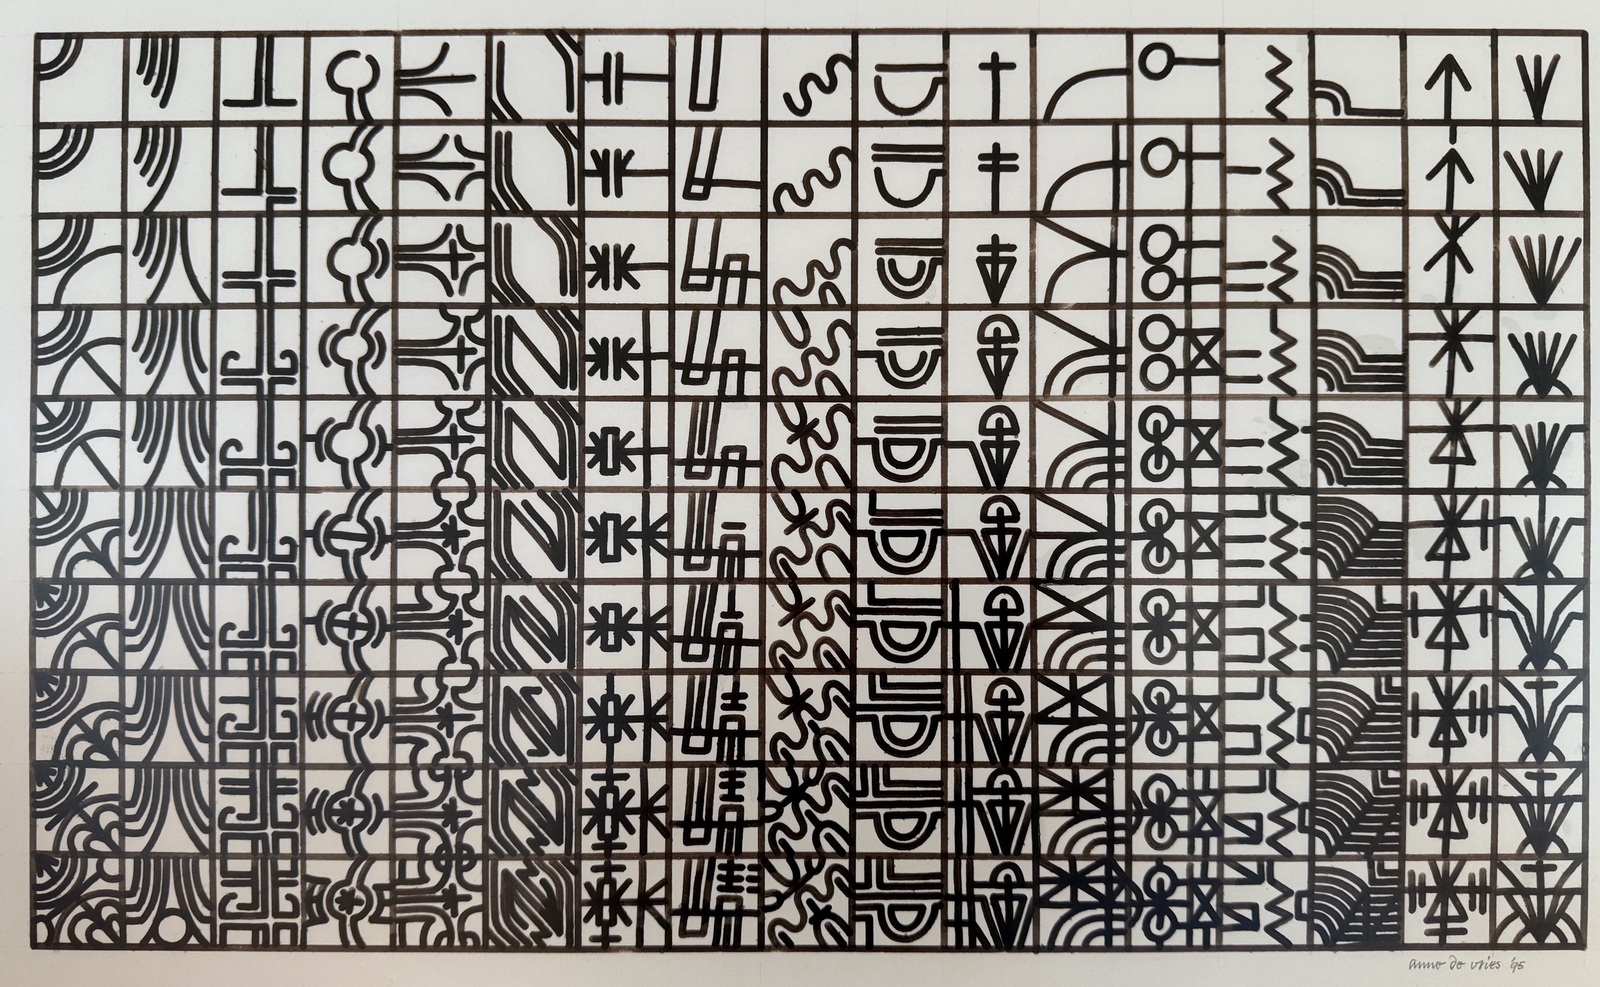 anno de vries '95